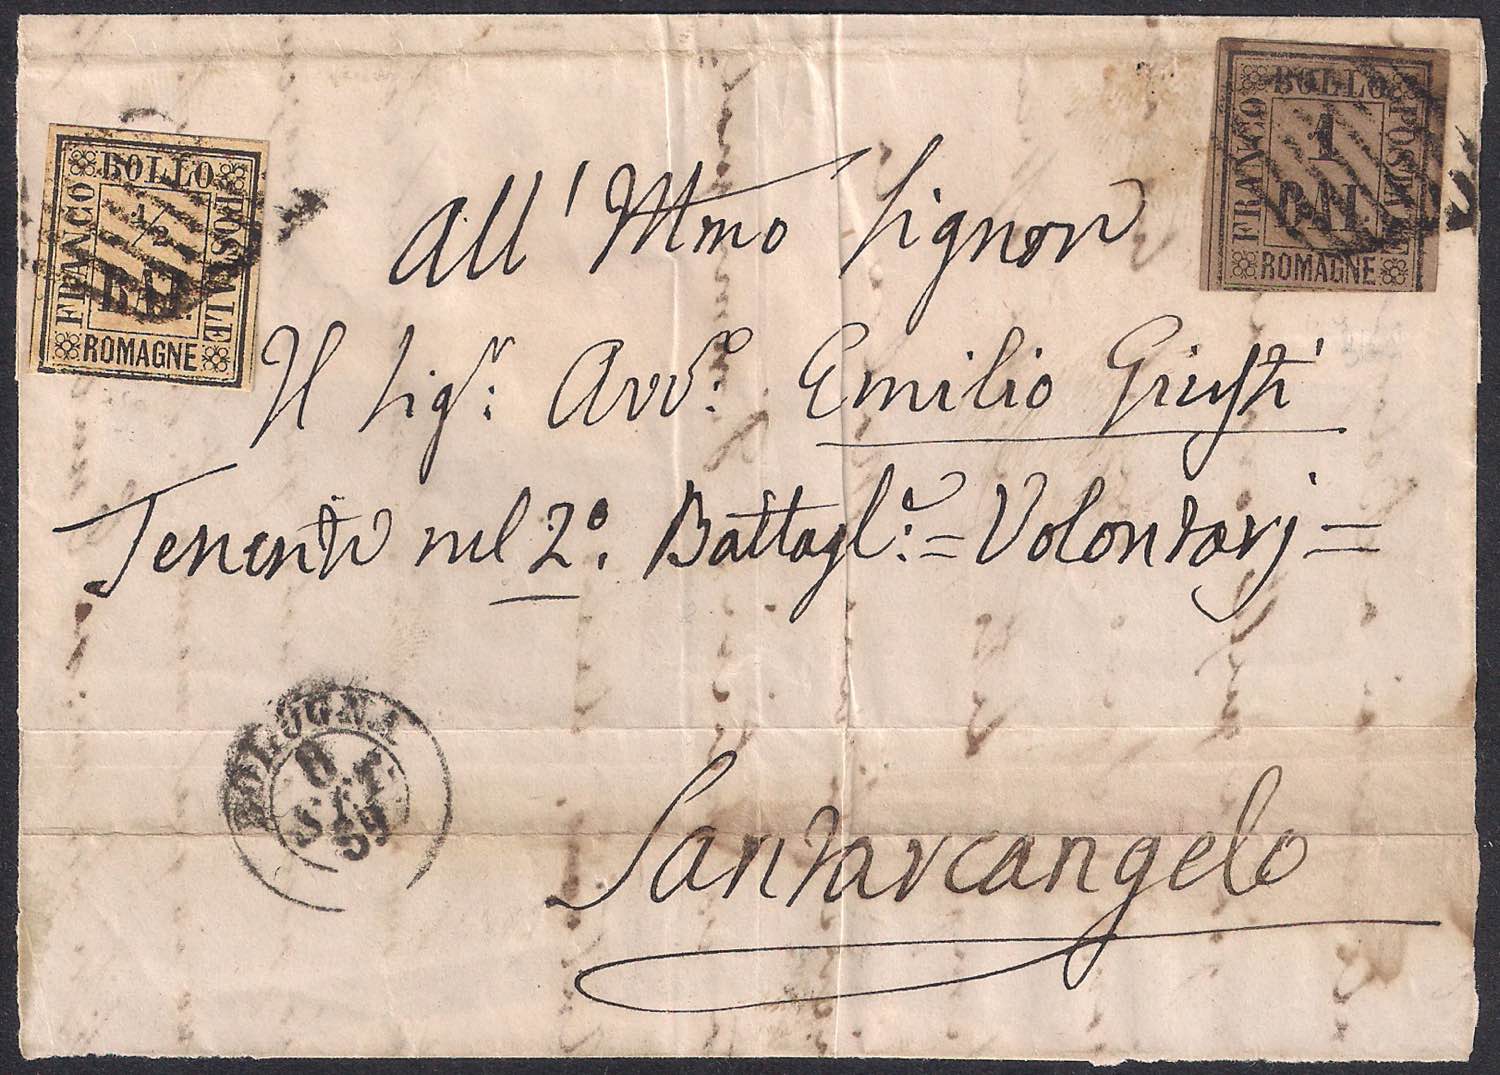 FRANCO BOLLO POSTALE
1/2
BAI
ROMAGNE
FRANCO BOLLO POSTALE
1
BAI
ROMAGNE
All' Illmo Signor
Il Sigr: Avvo: Emilio Giusti
Tenente nel 2º. Battagle: = Volontarj =
BOLOGNA
8
SET
59
Santarcangelo